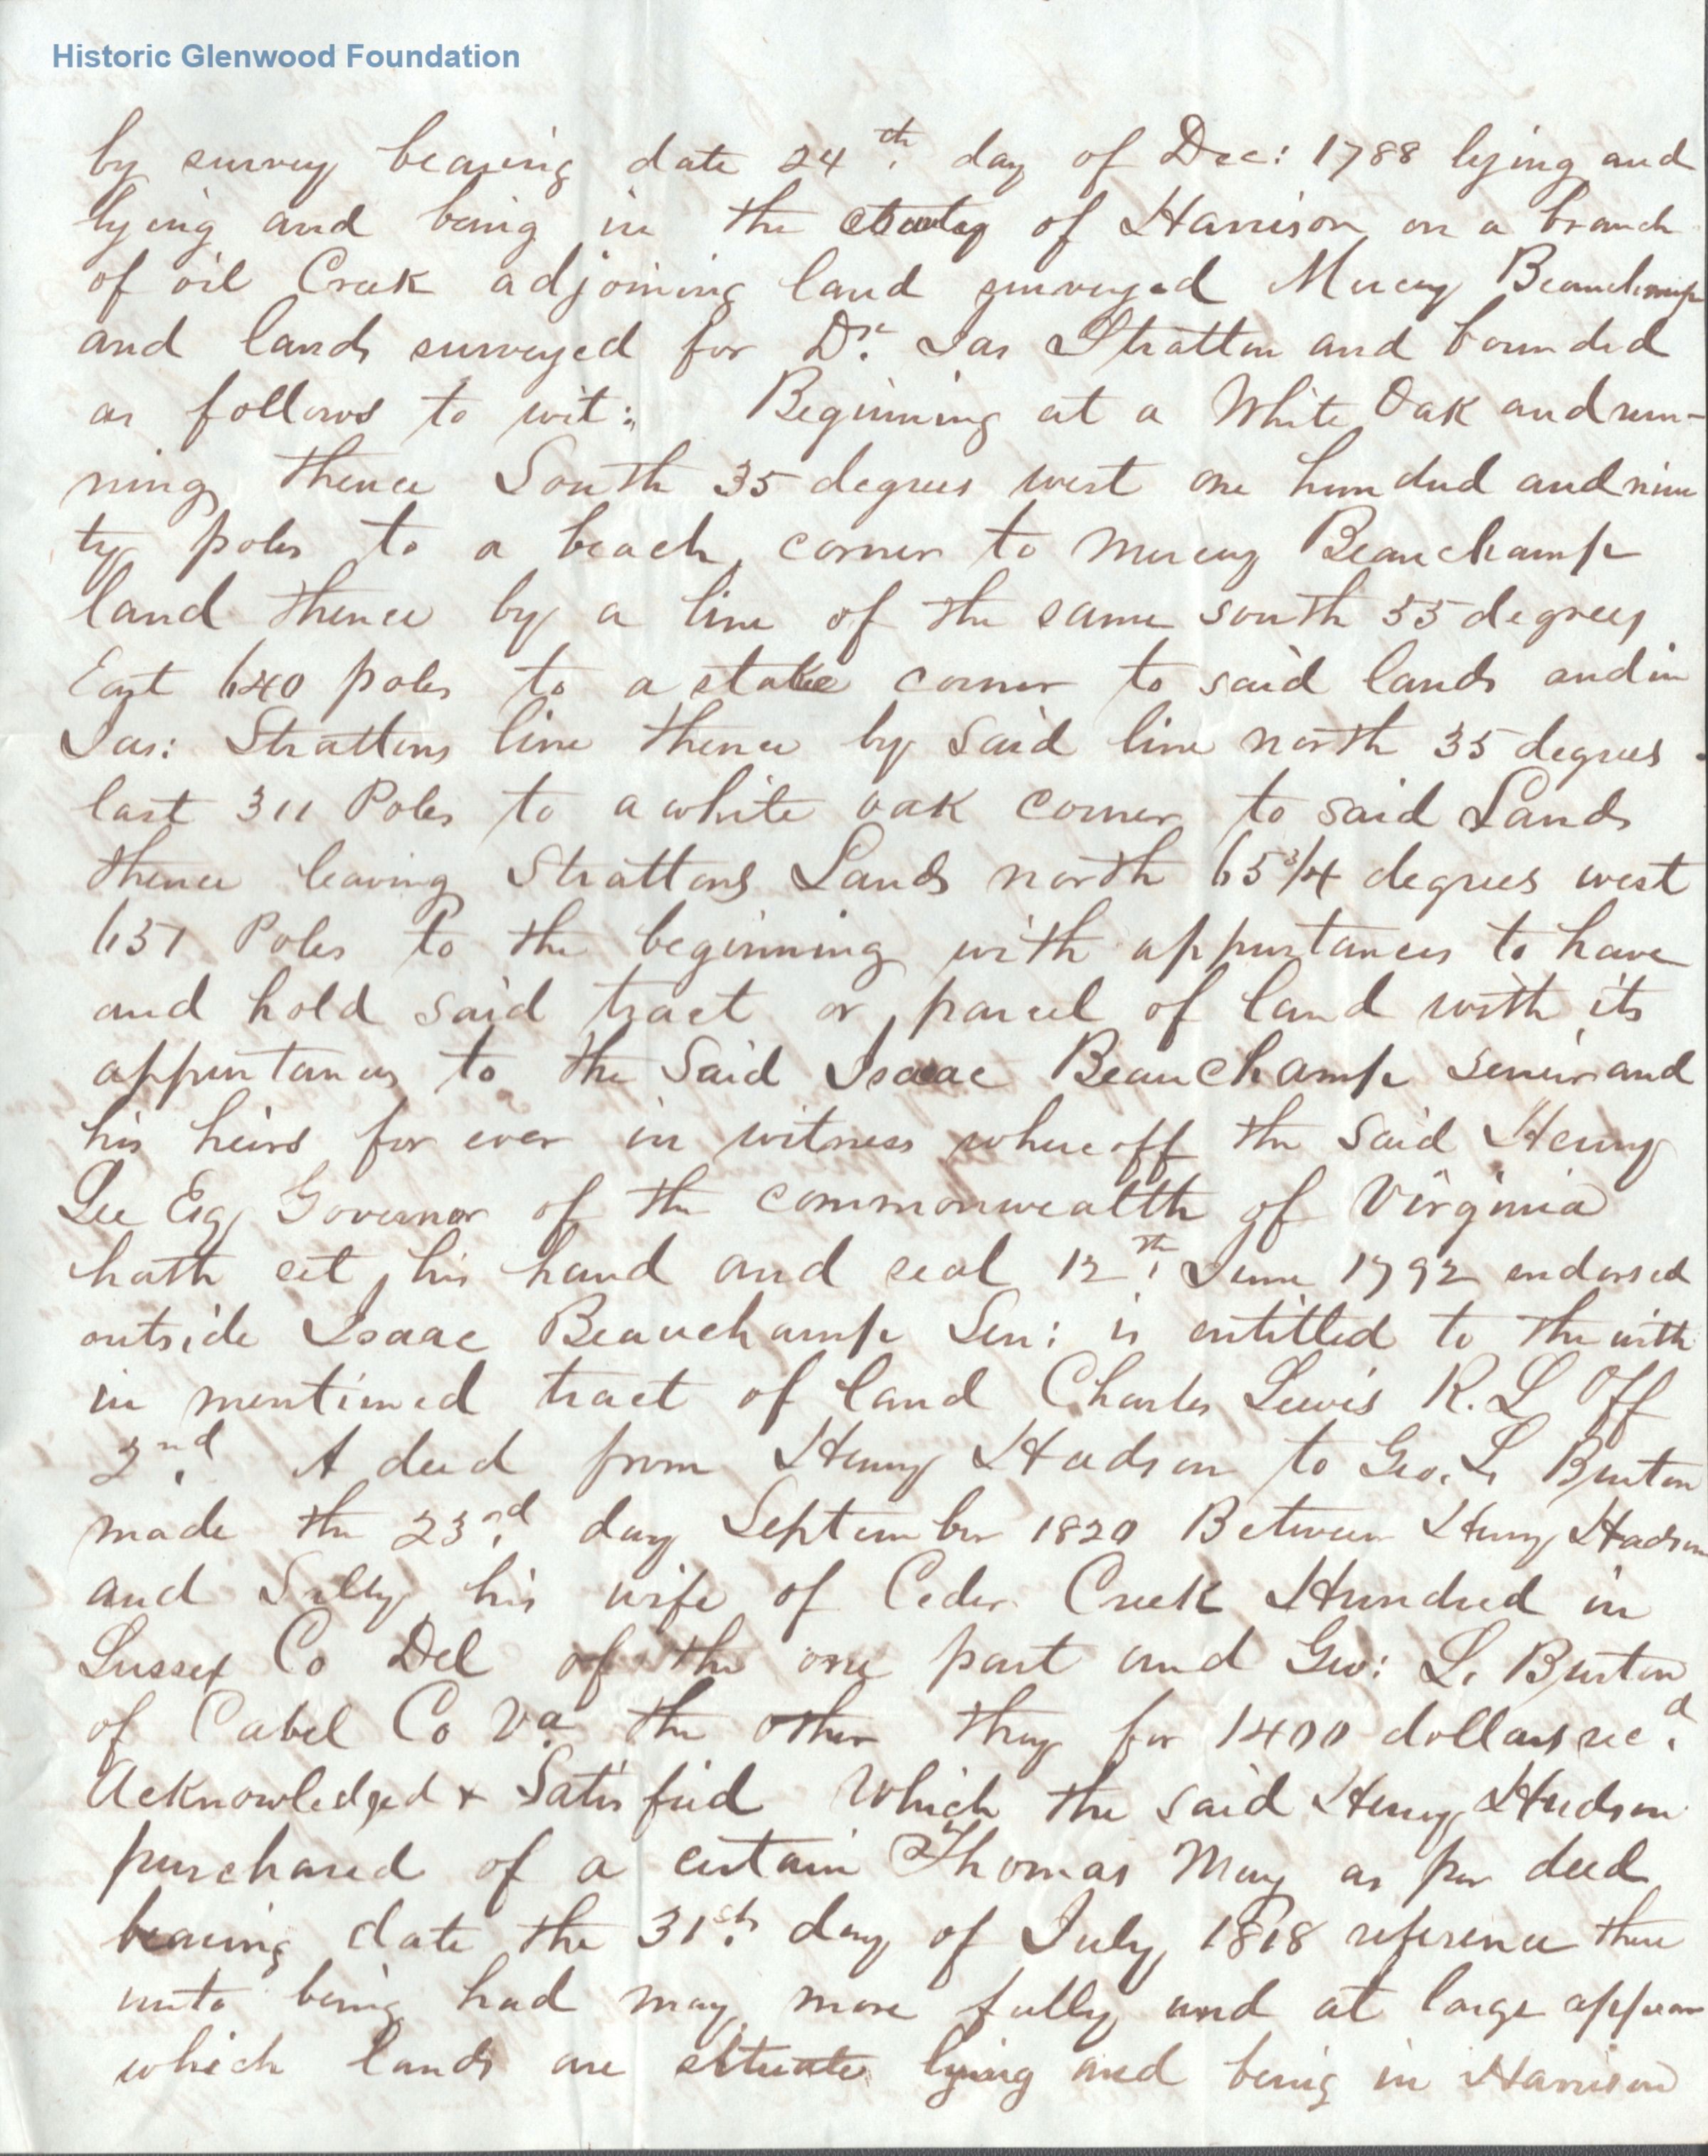 Historic Glenwood Foundation
by survey bearing date 24th. day of Dec: 1788 lying and
lying and being in the county of Harrison on a branch
of oil Creek adjoining land surveyed Mercy Beauchamp
and lands surveyed for Dr. Jas Stratton and bounded
as follows to wit: Beginning at a White Oak and run-
ning thence South 35 degrees west one hundred and nine
ty poles to a beach corner to Mercy Beauchamp
land thence by a line of the same south 55 degrees
East 640 poles to a stake corner to said lands and in
Jas: Strattons line thence by said line north 35 degrees
last 311 Poles to a white oak corner to said Lands
thence leaving Strattons Lands north 65 3/4 degrees west
651 Poles to the beginning with appurtances to have
and hold said tract or parcel of land with its
appurtances to the Said Isaac Beauchamp senior and
his heirs for ever in witness whereoff the said Henry
Lee Esq Governor of the commonwealth of Virginia
hath set his hand and seal 12th. June 1792 endorsed
outside Isaac Beauchamp Sen: is entitled to the with
in mentioned tract of land Charles Lewis R. L Off
2nd. A deed from Henry Hudson to Geo. L. Burton
made the 23rd. day September 1820 Between Henry Hudson
and Salley his wife of Ceder Creek Hundred in
Sussex Co Del of the one part and Geo: L. Burton
of Cabel Co Va the other they for 1400 dollars recd.
Acknowledged + Satisfied Which the said Henry Hudson
purchased of a certain Thomas May as per deed
bearing date the 31st. day of July 1818 reference there
unto being had may more fully and at large appear
which lands are situate lying and being in Harrison